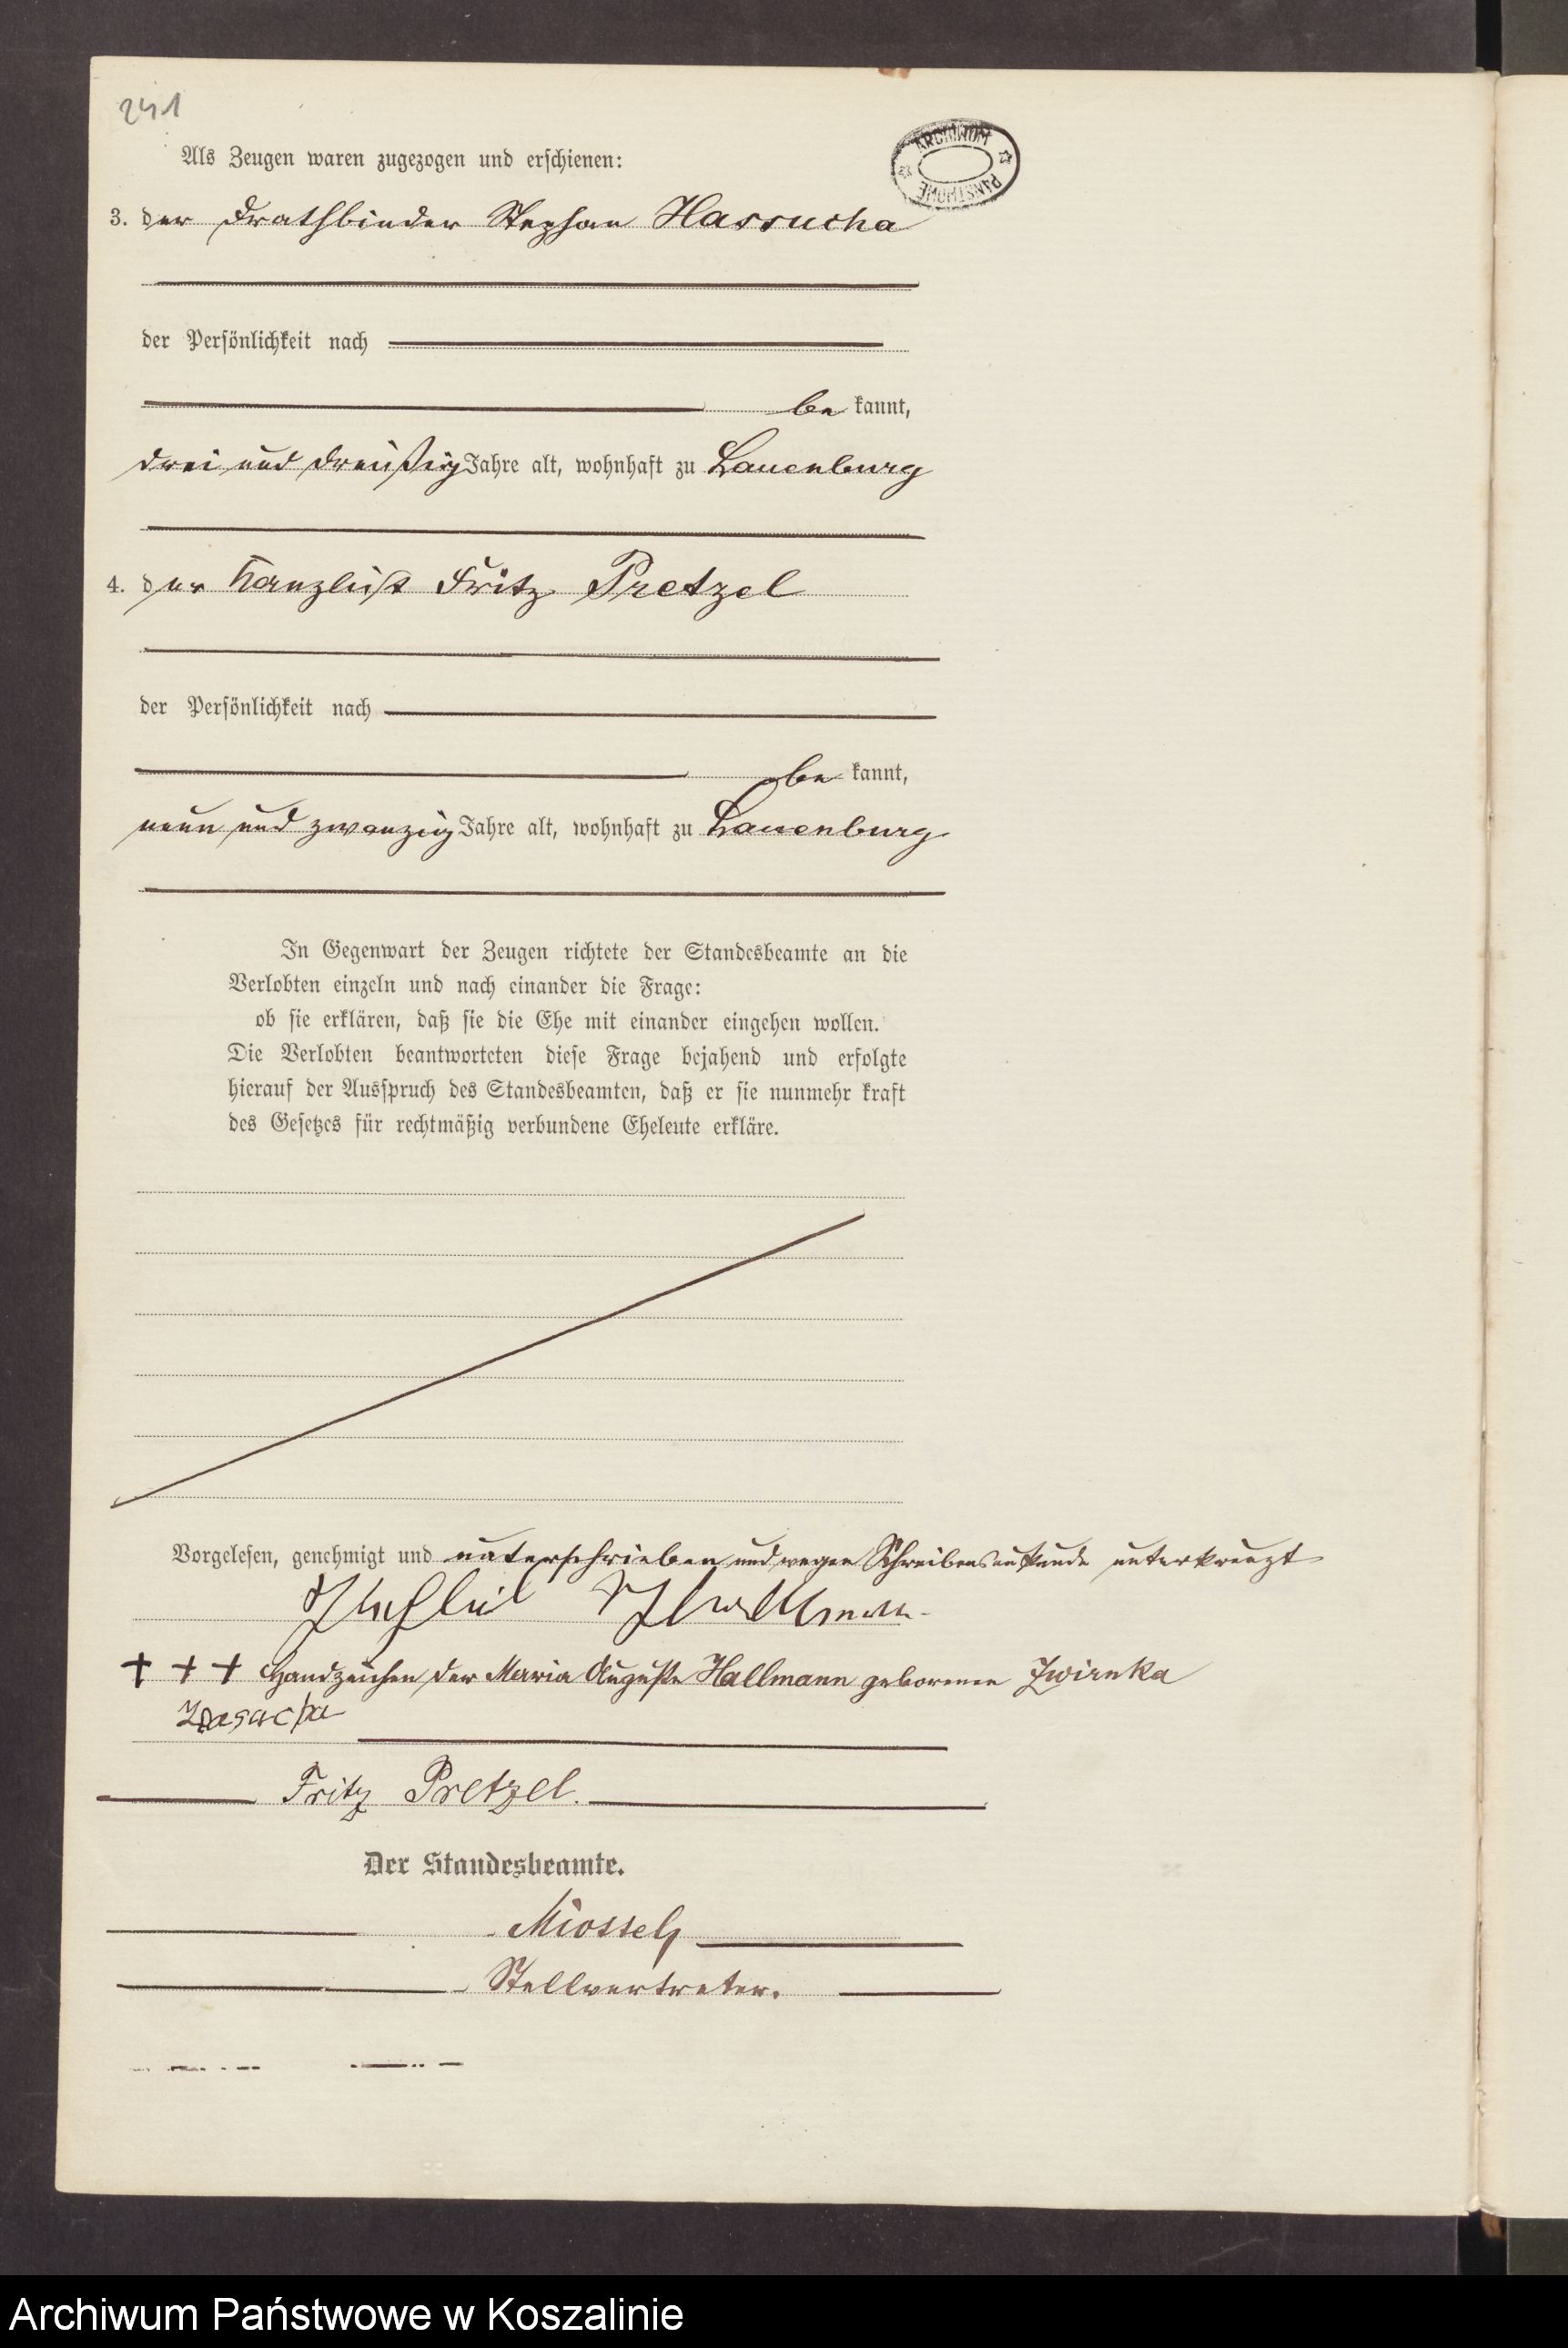 241
ARCHIWUM
PAŃSTWOWE
Als Zeugen waren zugezogen und erschienen:
3. der Drathbinder Stephan Hassucha
der Persönlichkeit nach
be kannt,
drei und dreißig Jahre alt, wohnhaft zu Lauenburg
4. der Kanzlist Fritz Pretzel
der Persönlichkeit nach
be kannt,
neun und zwanzig Jahre alt, wohnhaft zu Lauenburg
In Gegenwart der Zeugen richtete der Standesbeamte an die
Verlobten einzeln und nach einander die Frage:
ob sie erklären, daß sie die Ehe mit einander eingehen wollen.
Die Verlobten beantworteten diese Frage bejahend und erfolgte
hierauf der Ausspruch des Standesbeamten, daß er sie nunmehr kraft
des Gesetzes für rechtmäßig verbundene Eheleute erkläre.
Vorgelesen, genehmigt und unterschrieben und wegen Schreibensunkunde unterkreuzt
+ + + Handzeichen der Maria Auguste Hallmann geborenen Zwirnka
Fritz Pretzel.
Der Standesbeamte.
Stellvertreter.
Archiwum Państwowe w Koszalinie